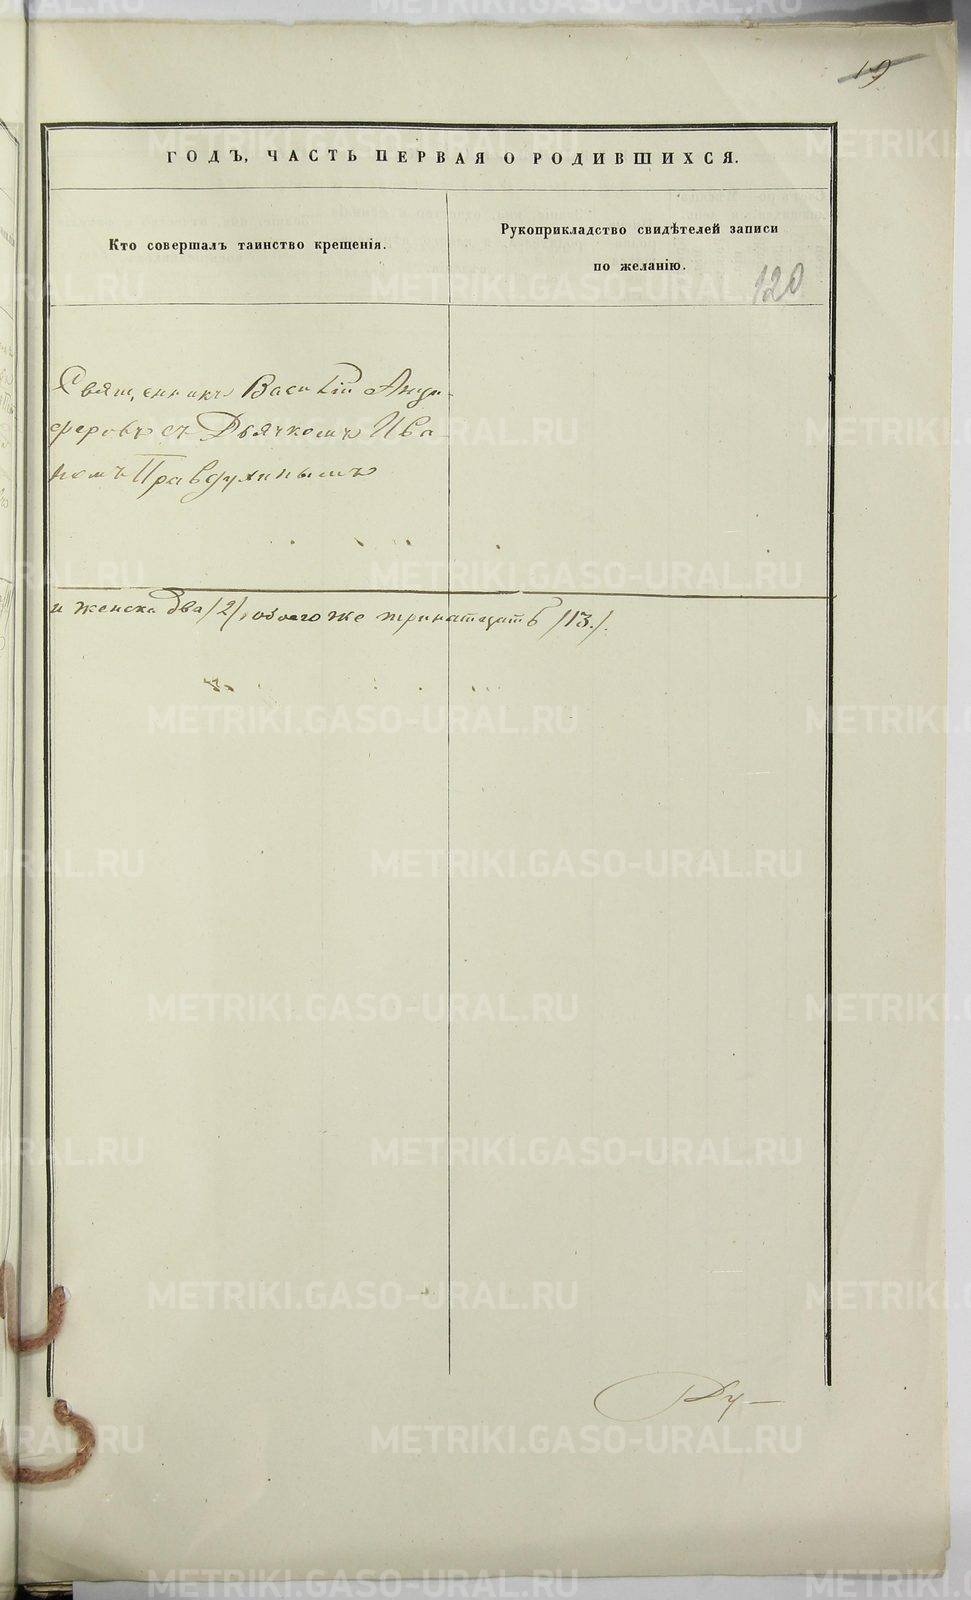 19
ГОДЪ, ЧАСТЬ ПЕРВАЯ О РОДИВШИХСЯ.
Кто совершалъ таинство крещенія.
Рукоприкладство свидѣтелей записи
по желанію.
120
Священникъ Василій Анци-
феровъ съ Дьячкомъ Ива-
номъ Правдухинымъ
и женска два /2/, обоего же тринатцать /13./.
Ду-
METRIKI.GASO-URAL.RU